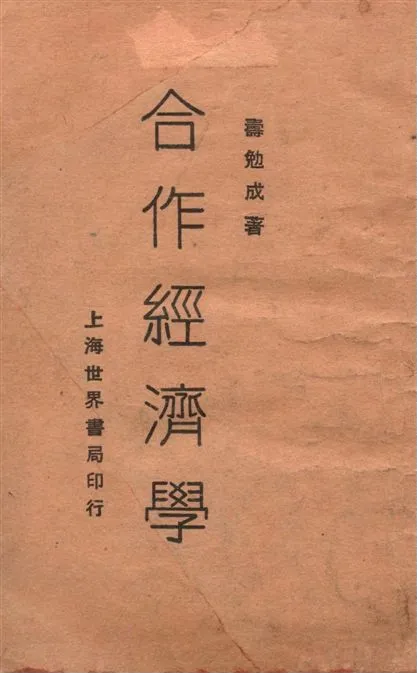 壽勉成著
合作經濟學
上海世界書局印行